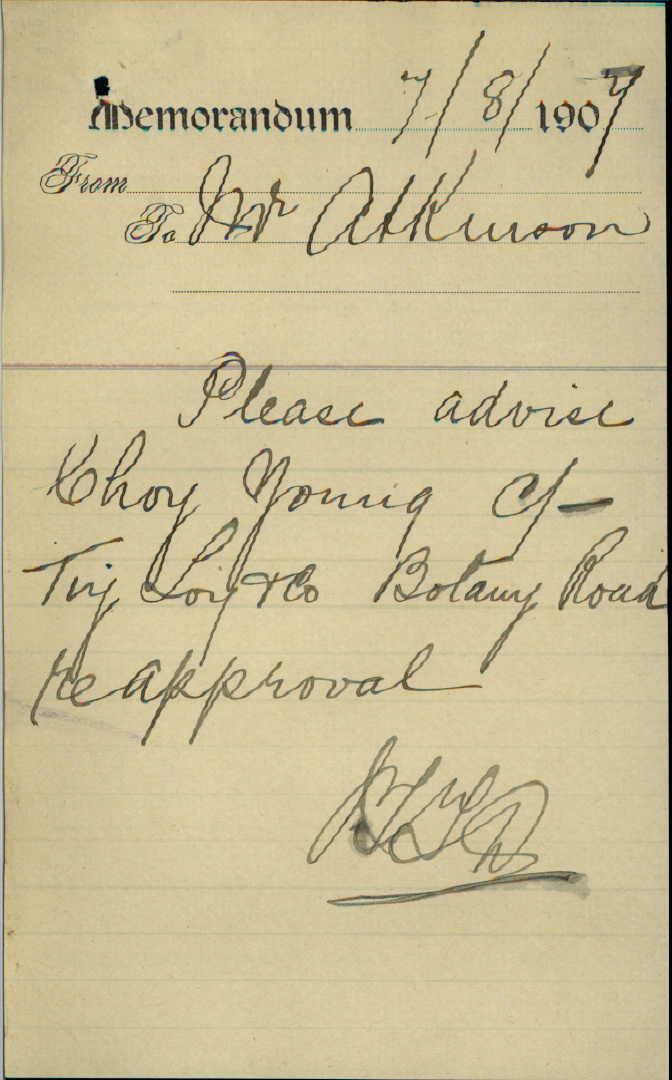 Memorandum 7/8/1907
From
To Mr Atkinson
Please advise
Choy Young c/-
Tiy Loy & Co Botany Road
re approval